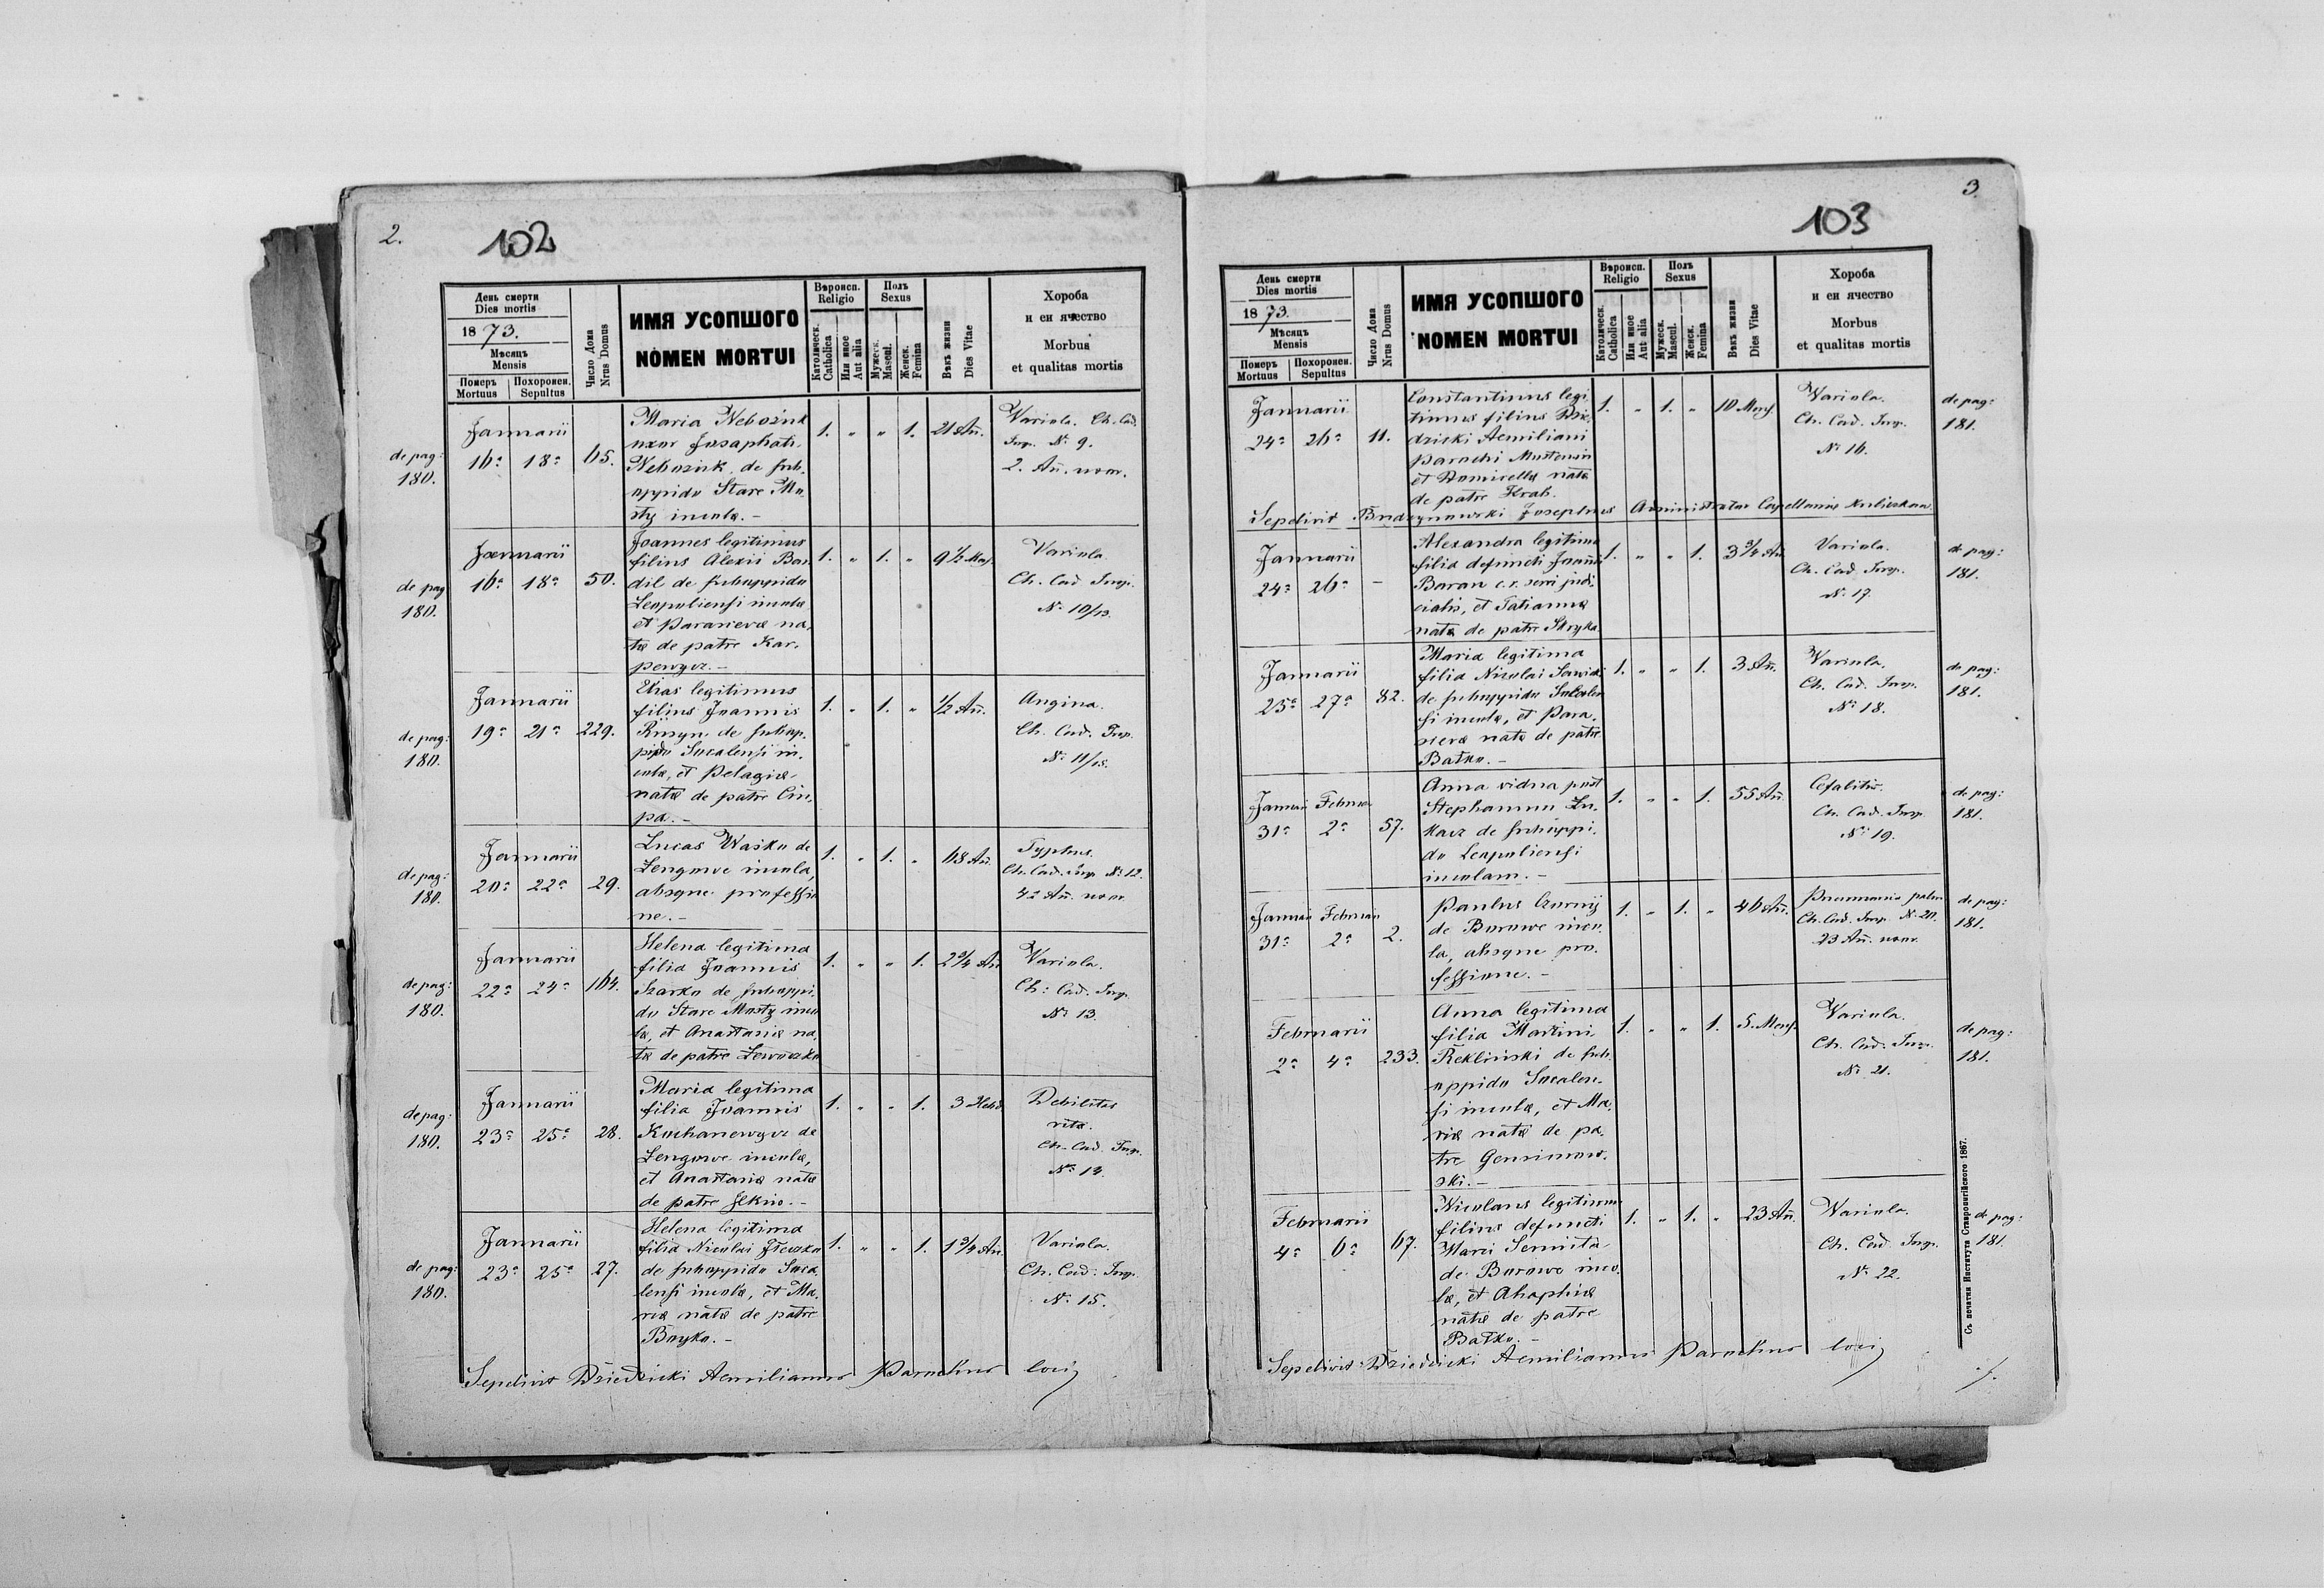 2.
102
День смерти
Dies mortis
1873.
Мѣсяць
Mensis
Померъ
Mortuus
Похоронен.
Sepultus
Число Дома
Nrus Domus
ИМЯ УСОПШОГО
NOMEN MORTUI
Вѣроисп.
Religio
Католическ.
Catholica
Или иное
Aut alia
Полъ
Sexus
Мужеск.
Mascul.
Женск.
Femina
Вѣкъ жизни
Dies Vitae
Хороба
и еи ячество
Morbus
et qualitas mortis
de pag:
180.
Januarii
16a 18a 65.
Maria Nebożuk
uxor Josaphati
Nebożuk, de sub-
oppido Stare Mo-
sty incola. –
1. „ „ 1. 21 Añ.
Variola. Ch. Cad.
Insp. No 9.
2. Añ. uxor.
de pag
180.
Januarii
16a 18a 50.
Joannes legitimus
filius Alexii Ban
dil de suboppido
Leopoliensi incolæ
et Parascevæ na,
tæ de patre Kar,
pewycz. –
1. „ 1. „ 9 1/2 Mens.
Variola
Ch. Cad Insp.
No 10/13.
de pag:
180.
Januarii
19a 21a 229.
Elias legitimus
filius Joannis
de subop,
pido Socalensi in,
colæ, et Pelagiæ
natæ de patre Ciu,
pa. –
1. „ 1. „ 1/2 Añ.
Angina.
Ch. Cad. Insp.
No 11/15.
de pag:
180.
Januarii
20a 22a 29.
Lucas Waśko de
Zengowe incola,
absque professio
ne. –
1. „ 1. „ 68 Añ.
Typhus.
Ch. Cad. Insp No 12.
42 Añ. uxor
de pag:
180.
Januarii
22a 24a 164.
Helena legitima
filia Joannis
Szarko de suboppi,
do Stare Mosty inco
læ, et Anastasiæ na,
tæ de patre
1. „ „ 1. 2 3/4 Añ
Variola.
Ch: Cad. Insp.
No 13.
de pag:
180.
Januarii
23a 25a 28.
Maria legitima
filia Joannis
Kochanewycz de
Zengowe incolæ,
et Anastasiæ natæ
de patre Senkiw. –
1. „ „ 1. 3 Hebd
Debilitas
vitæ.
Ch. Cad. Insp.
No 14.
de pag:
180.
Januarii
23a 25a 27.
Helena legitima
filia Nicolai
de suboppido Soca,
lensi incolæ, et Ma,
riæ natæ de patre
Boyko. –
1. „ „ 1. 1 3/4 Añ.
Variola.
Ch. Cad. Insp.
No 15.
Sepelivit Dziedzicki Aemilianus Parochus loci
3
103
День смерти
Dies mortis
1873.
Мѣсяць
Mensis
Померъ
Mortuus
Похоронен.
Sepultus
Число Дома
Nrus Domus
ИМЯ УСОПШОГО
NOMEN MORTUI
Вѣроисп.
Religio
Католическ.
Catholica
Или иное
Aut alia
Полъ
Sexus
Мужеск.
Mascul.
Женск.
Femina
Вѣкъ жизни
Dies Vitae
Хороба
и еи ячество
Morbus
et qualitas mortis
Januarii
24a 26a 11.
Constantinus legi,
timus filius Dzie,
dzicki Aemiliani
parochi Mostensis
et Domicellæ natæ
de patre Krat.
1. „ 1. „ 10 Mens.
Variola.
Ch. Cad. Insp.
No 16.
de pag:
181.
Sepelivit Budzynowski Josephus Administrator Capellaniæ
Januarii
24a 26a –
Alexandra legitima
filia defuncti Joannis
Baran c.r. servi judi
cialis, et Tatiannæ
natæ de patre Skryka.
1. „ „ 1. 3 3/4 Añ
Variola.
Ch. Cad. Insp.
No 17.
de pag:
181.
Januarii
25a 27a 82.
Maria legitima
filia Nicolai
de suboppido Socalen
si incolæ, et Para,
scevæ natæ de patre
Batko. –
1. „ „ 1. 3 Añ.
Variola.
Ch. Cad. Insp.
No 18.
de pag:
181.
Januarii Februar
31a 2a 57.
Anna vidua post
Stephanum Lu,
kacz de suboppi,
do Leopoliensi
incolam. –
1. „ „ 1. 55 Añ.
Cefalitis.
Ch. Cad. Insp
No 19.
de pag:
181.
Januarii Februarii
31a 2a 2.
Paulus Czornij
de Borowe inco,
la, absque pro,
fessione. –
1. „ 1. „ 46 Añ.
Pneumonia
Ch. Cad. Insp. No 20.
23 Añ. uxor.
de pag:
181.
Februarii
2a 4a 233.
Anna legitima
filia Martini
Rekliński de sub,
oppido Socalen,
si incolæ, et Ma,
riæ natæ de pa,
tre
ski. –
1. „ „ 1. 5. Mens.
Variola.
Ch. Cad. Insp.
No 21.
de pag:
181.
Februarii
4a 6a 67.
Nicolaus legitimus
filius defuncti
Marci
de Borowe inco,
læ, et Ahaphiæ
natæ de patre
Batko. –
1. „ 1. „ 23 Añ.
Variola.
Ch. Cad. Insp.
No 22.
de pag:
181.
Sepelivit Dziedzicki Aemilianus Parochus loci
Съ печатни Института Ставропигійского 1867.